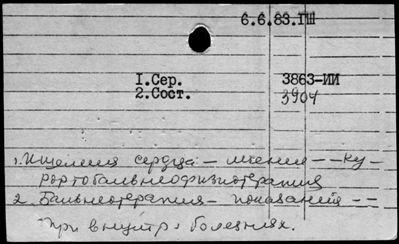 6.6.83.ГШ
1.Сер. 3863-ИИ
2.Сост. 3904
1. Ишемия сердца – лечение – – ку-
рортобальнеофизиотерапия
2. Бальнеотерапия – показания – –
при внутр. болезнях.